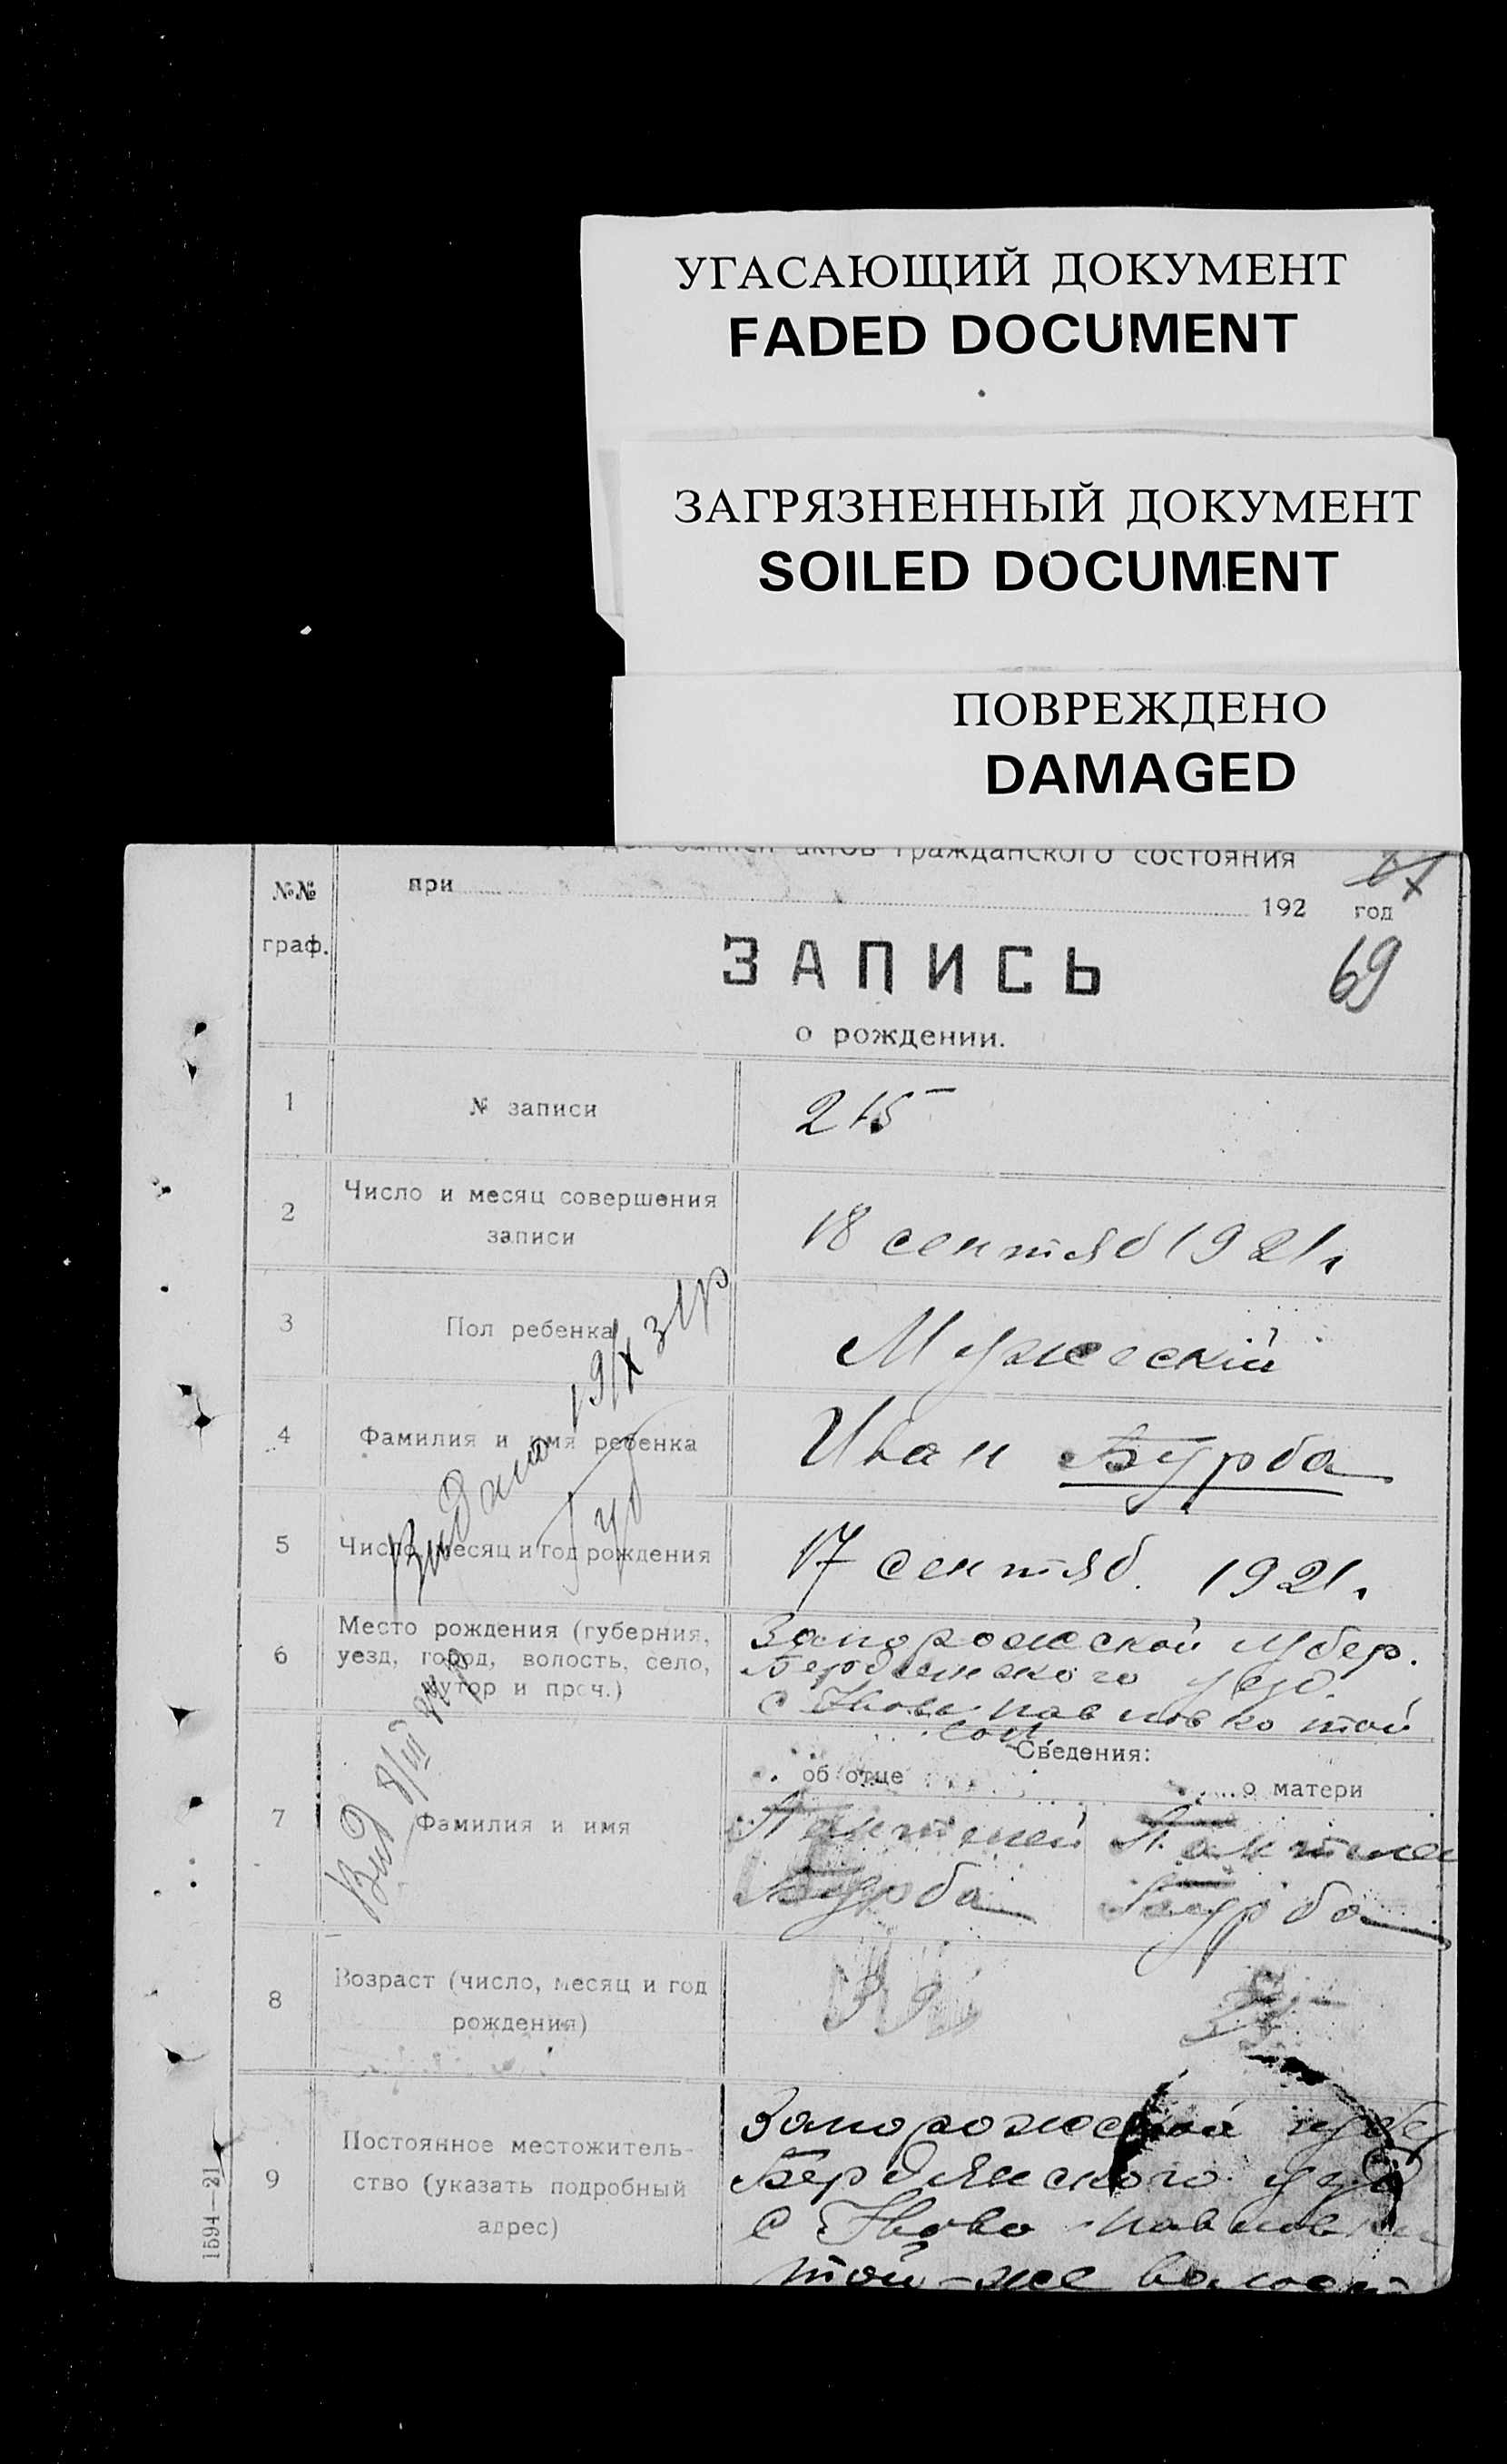 УГАСАЮЩИЙ ДОКУМЕНТ
FADED DOCUMENT
ЗАГРЯЗНЕННЫЙ ДОКУМЕНТ
SOILED DOCUMENT
ПОВРЕЖДЕНО
DAMAGED
записи актов гражданского состояния
№№ граф.
при 192 год
69
ЗАПИСЬ
о рождении.
1 № записи 215
2 Число и месяц совершения
записи
18 сентяб 1921 г
3 Пол ребенка Мужескій
4 Фамилия и имя ребенка Иван Бурба
5 Число месяц и год рождения 17 сентяб. 1921 г.
6 Место рождения (губерния,
уезд, город, волость, село,
хутор и проч.)
Запорожской губер.
Бердянского уезд.
с Ново павловко той
Сведения:
об отце о матери
7 Фамилия и имя
Пантелей
Бурба
Бурба
8 Возраст (число, месяц и год
рождения)
9 Постоянное местожитель-
ство (указать подробный
адрес)
Запорожской губер
Бердянского уезд
с Ново павловки
той-же волости
Видано 19/X 31р
Вид 8/III
1594—21